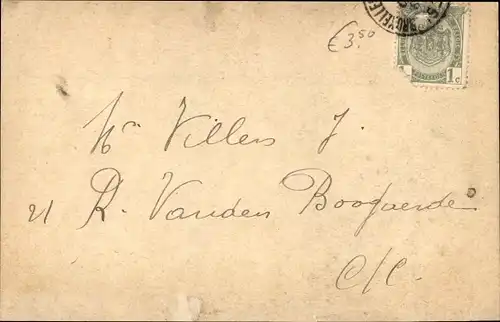 BRUXELLE
€ 3.50
1c
Mr Villers J.
21 R. Vanden Boogaerde
C/C.